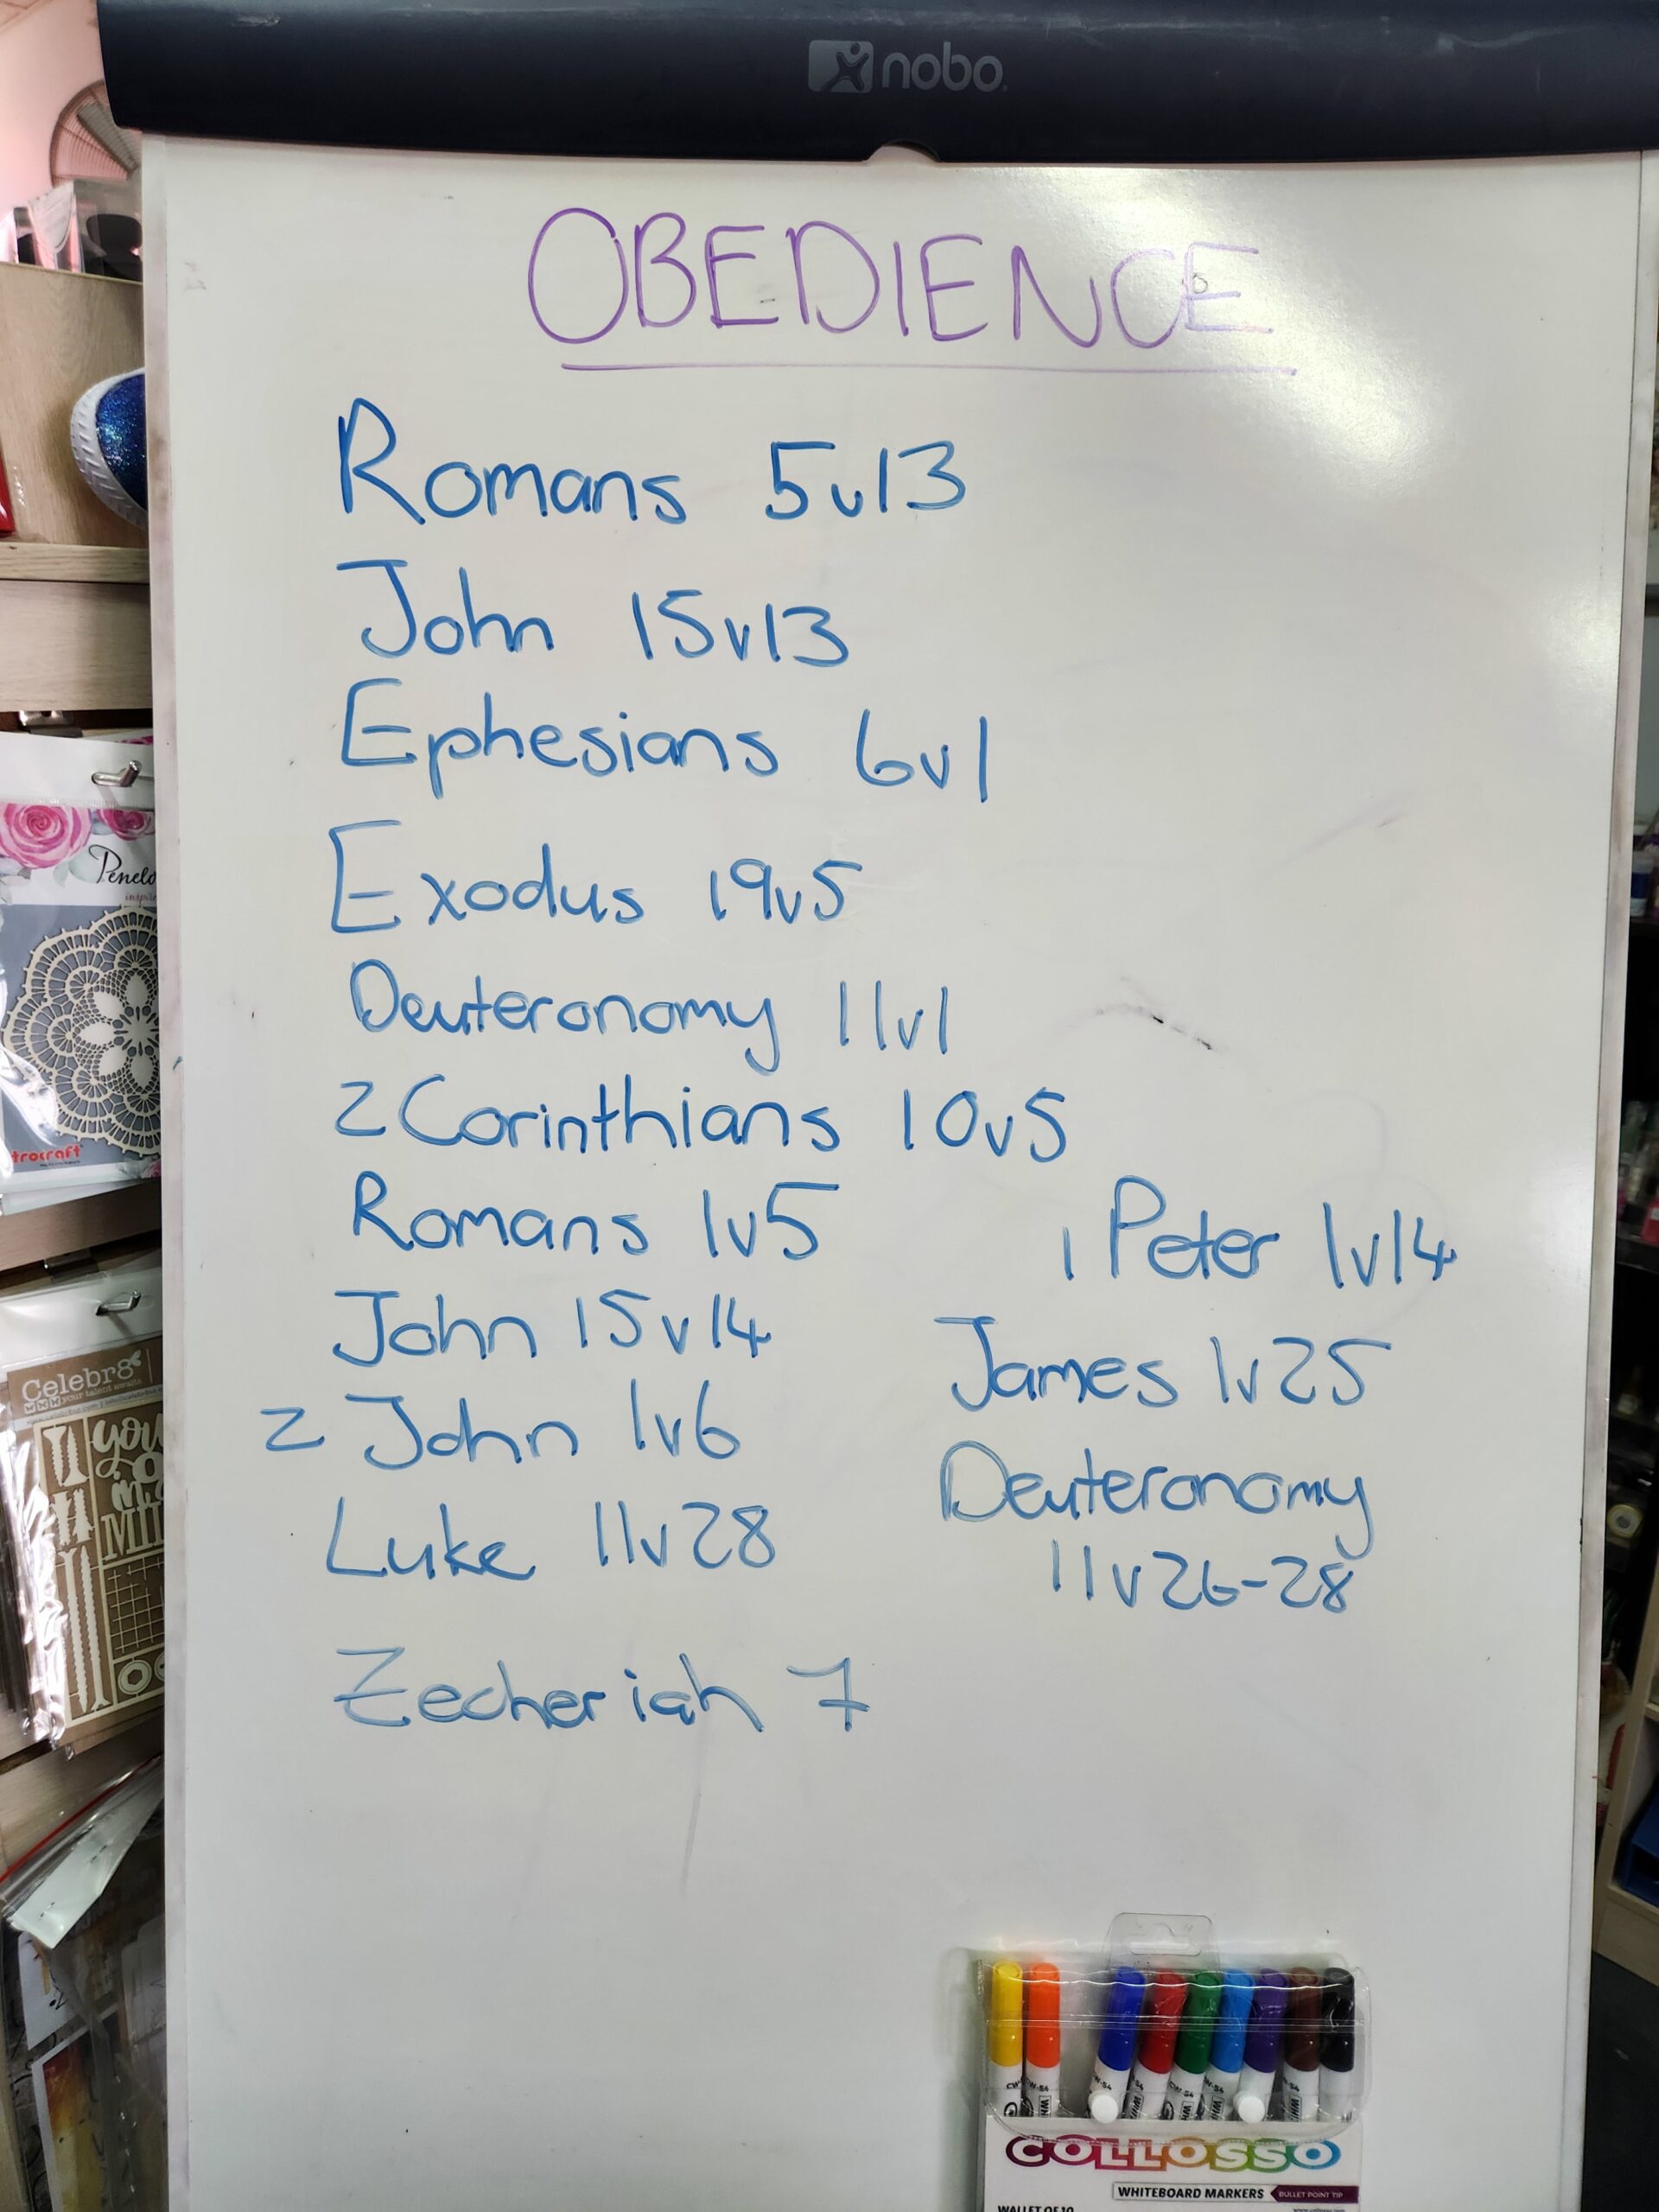 nobo
OBEDIENCE
Romans 5v13
John 15v13
Ephesians 6v1
Exodus 19v5
Deuteronomy 11v1
2 Corinthians 10v5
Romans 1v5
John 15v14
2 John 1v6
Luke 11v28
Zecheriah 7
1 Peter 1v14
James 1v25
Deuteronomy
11v26-28
Celebr8
your talent awaits
you
MI
COLLOSSO
WHITEBOARD MARKERS BULLET POINT TIP
WALLET OF 10